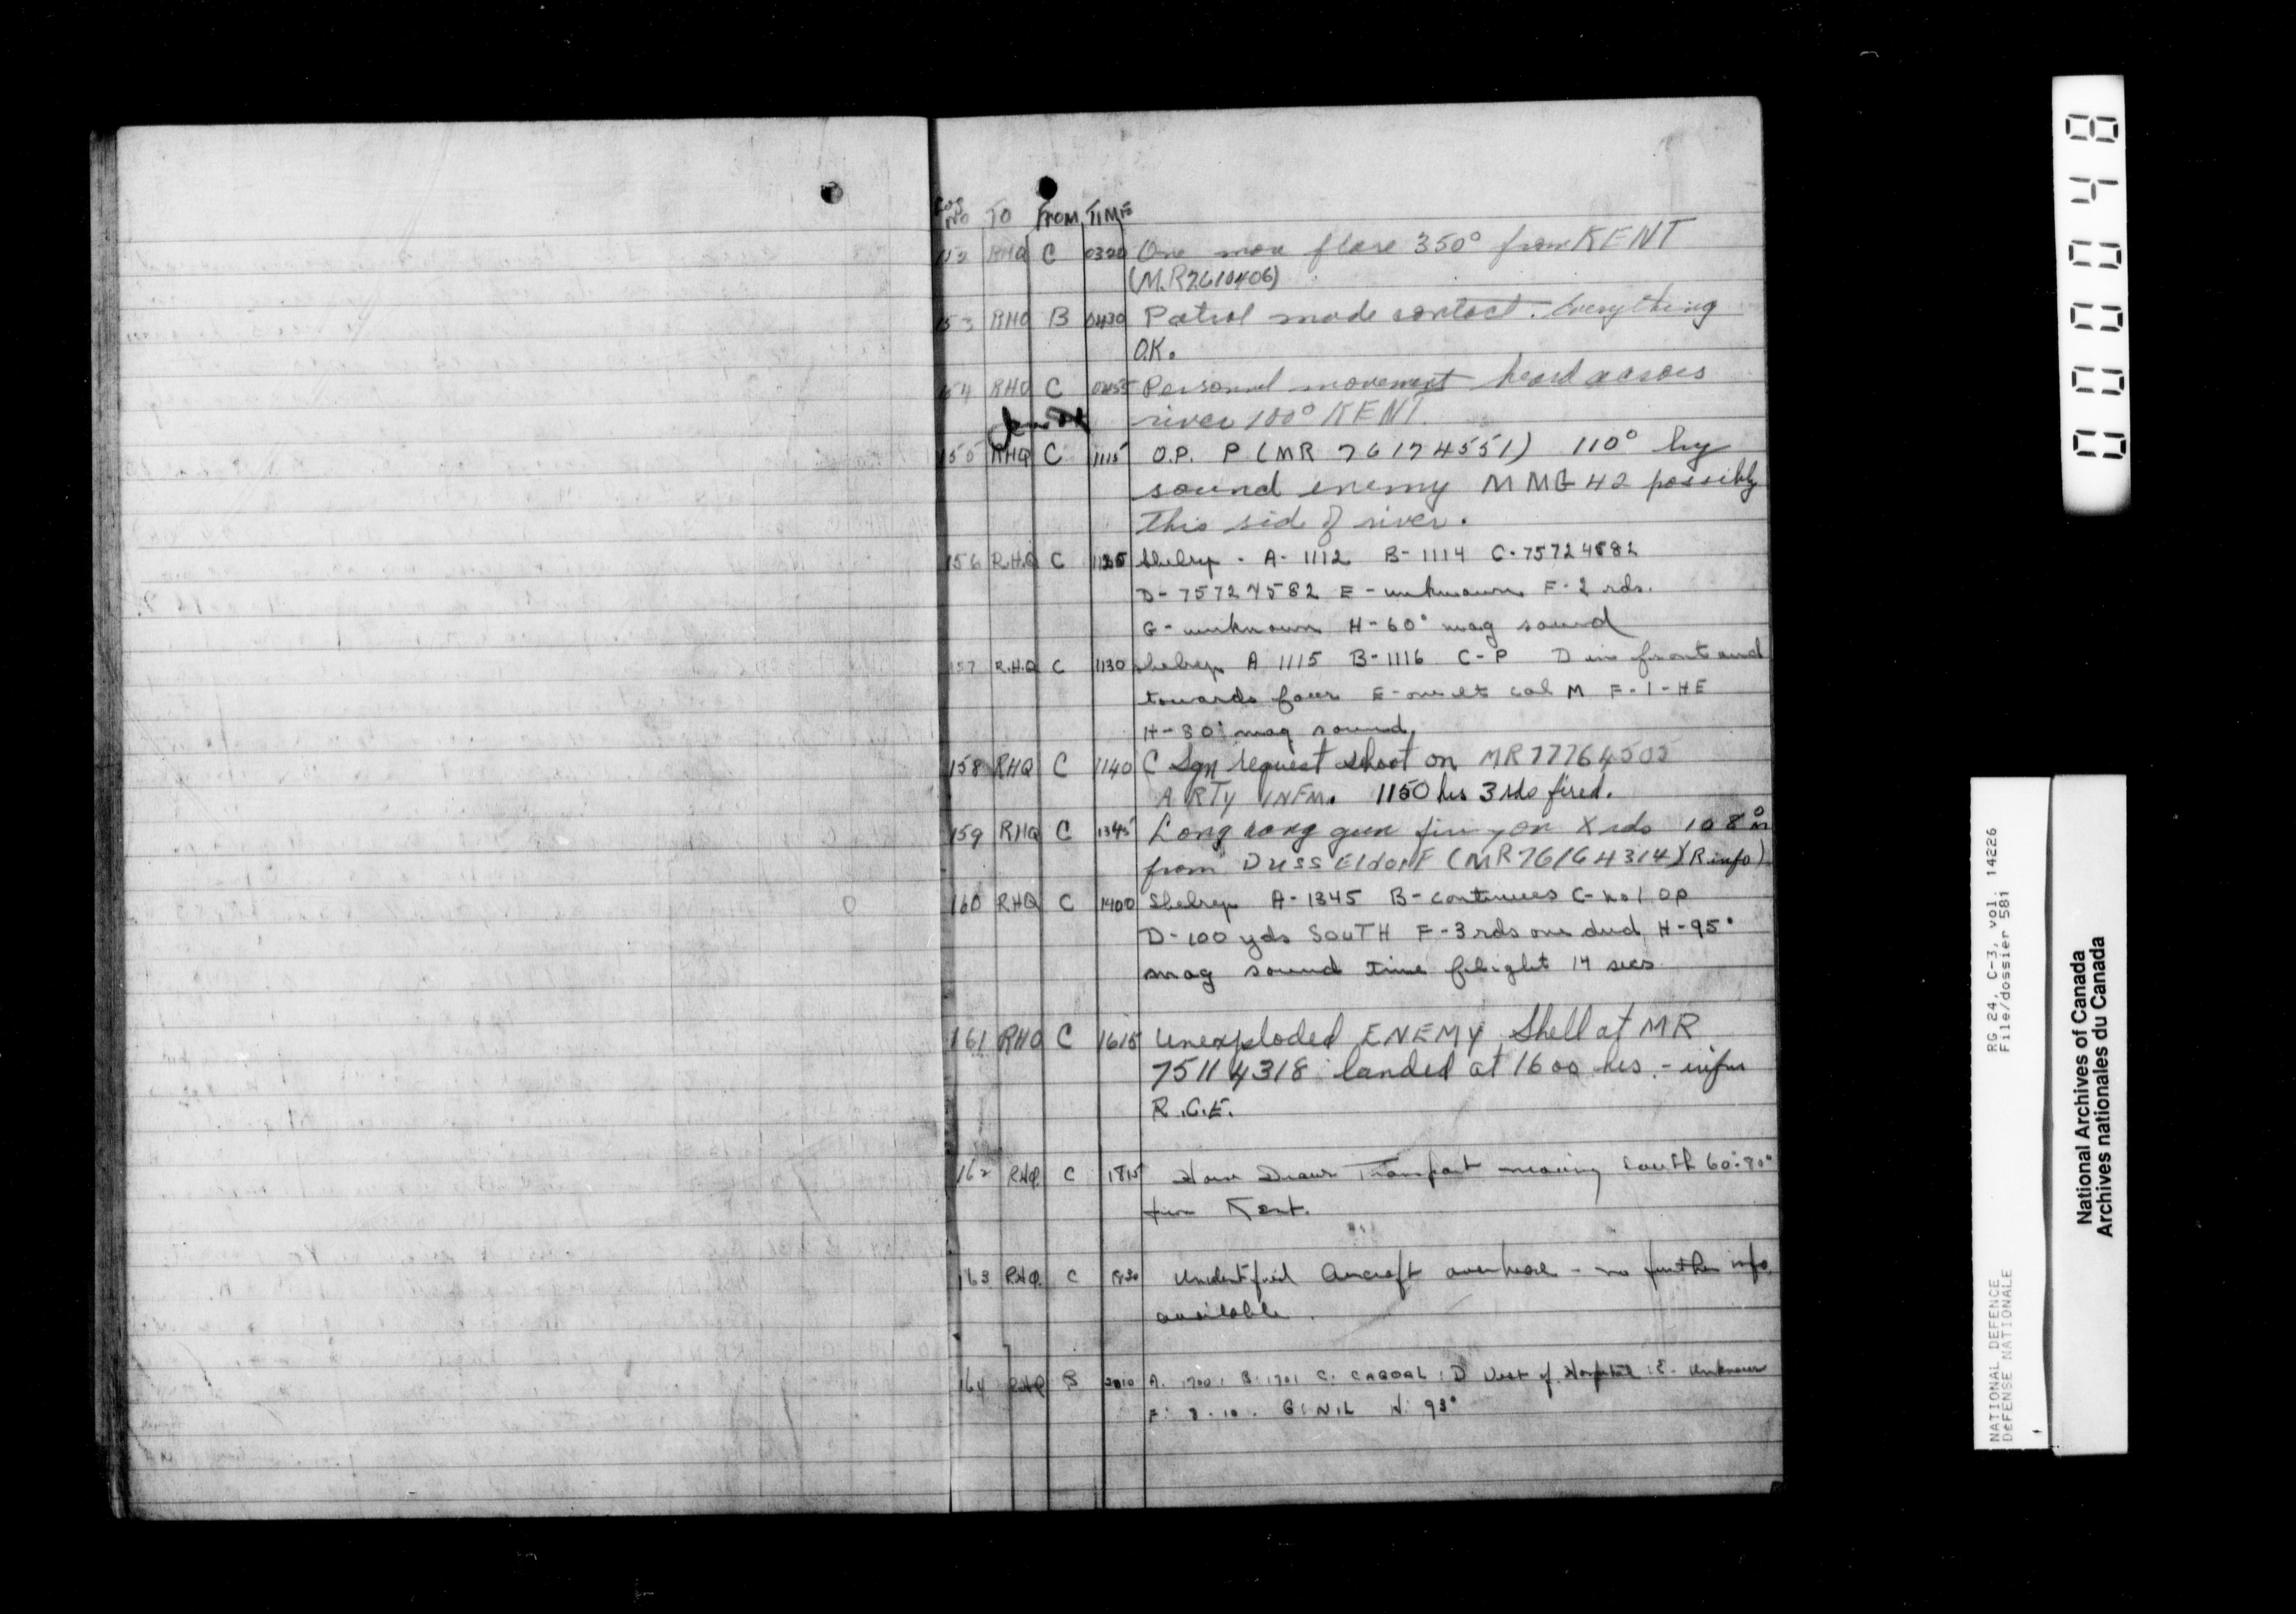 Log
No TO FROM TIME
152 RHQ C 0320 One more flare 350° from KENT
(M.R 7610406)
153 RHQ B 0430 Patrol made contact. Everything
O.K.
154 RHQ C 0455 Personnel movement heard across
river 100° KENT.
155 RHQ C 1115 O.P. P (MR 76174551) 110° by
sound enemy MMG 42 possibly
this side of river.
156 R.H.Q C Shelrep - A- 1112 B- 1114 C- 75724582
D- 75724582 E- unknown F- 2 rds.
G- unknown H- 60° mag sound
157 R.H.Q C 1130 Shelrep A 1115 B- 1116 C- P D in front and
towards E- cal M F- 1- HE
H- 80° mag sound.
158 RHQ C 1140 C Sqn request shoot on MR 77764505
ARTY INFM. 1150 hrs 3 rds fired.
159 RHQ C 1345 Long rang gun firing on X rds 108° m
from DUSSEldorF (MR 76164314) (R info)
160 RHQ C 1400 Shelrep A- 1345 B- continues C- No 1 OP
D- 100 yds SOUTH F- 3 rds one dud H- 95°
mag sound time flight 14 secs
161 RHQ C 1615 Unexploded ENEMY Shell at MR
75114318 landed at 1600 hrs. - infm
R.C.E.
162 RHQ. C 1815 Horse Drawn Transport moving South 60°-80°
from Kent.
163 RHQ. C 1830 Unidentified Aircraft overhead - no further info.
available.
164 RHQ B 2010 A. 1700: B: 1701 C: : D West of Hospital : E- Unknown
F: 8-10. G: NIL H: 93°
00048
RG 24, C-3, vol. 14226
File/dossier 581
NATIONAL DEFENCE
DéFENSE NATIONALE
National Archives of Canada
Archives nationales du Canada